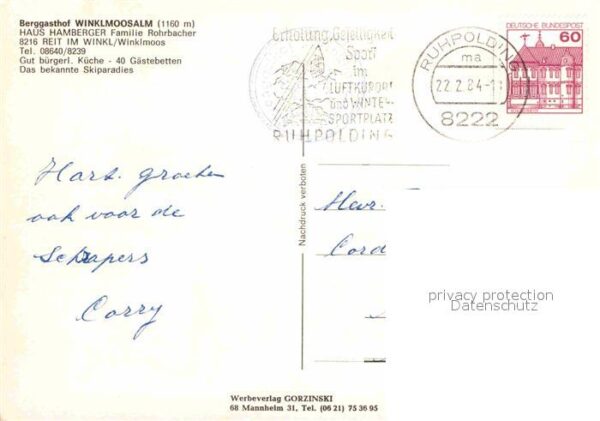 Berggasthof WINKLMOOSALM (1160 m)
HAUS HAMBERGER Familie Rohrbacher
8216 REIT IM WINKL/Winklmoos
Tel. 08640/8239
Gut bürgerl. Küche - 40 Gästebetten
Das bekannte Skiparadies
Erholung, Geselligkeit
Sport
im
LUFTKURORT
und WINTER-
SPORTPLATZ
RUHPOLDING
RUHPOLDING
ma
22.2.84-1
8222
DEUTSCHE BUNDESPOST
60
Hart. groeten
ook voor de
Schapers
Corry
Nachdruck verboten
Mevr.
Cord
privacy protection
Datenschutz
Werbeverlag GORZINSKI
68 Mannheim 31, Tel. (06 21) 75 36 95